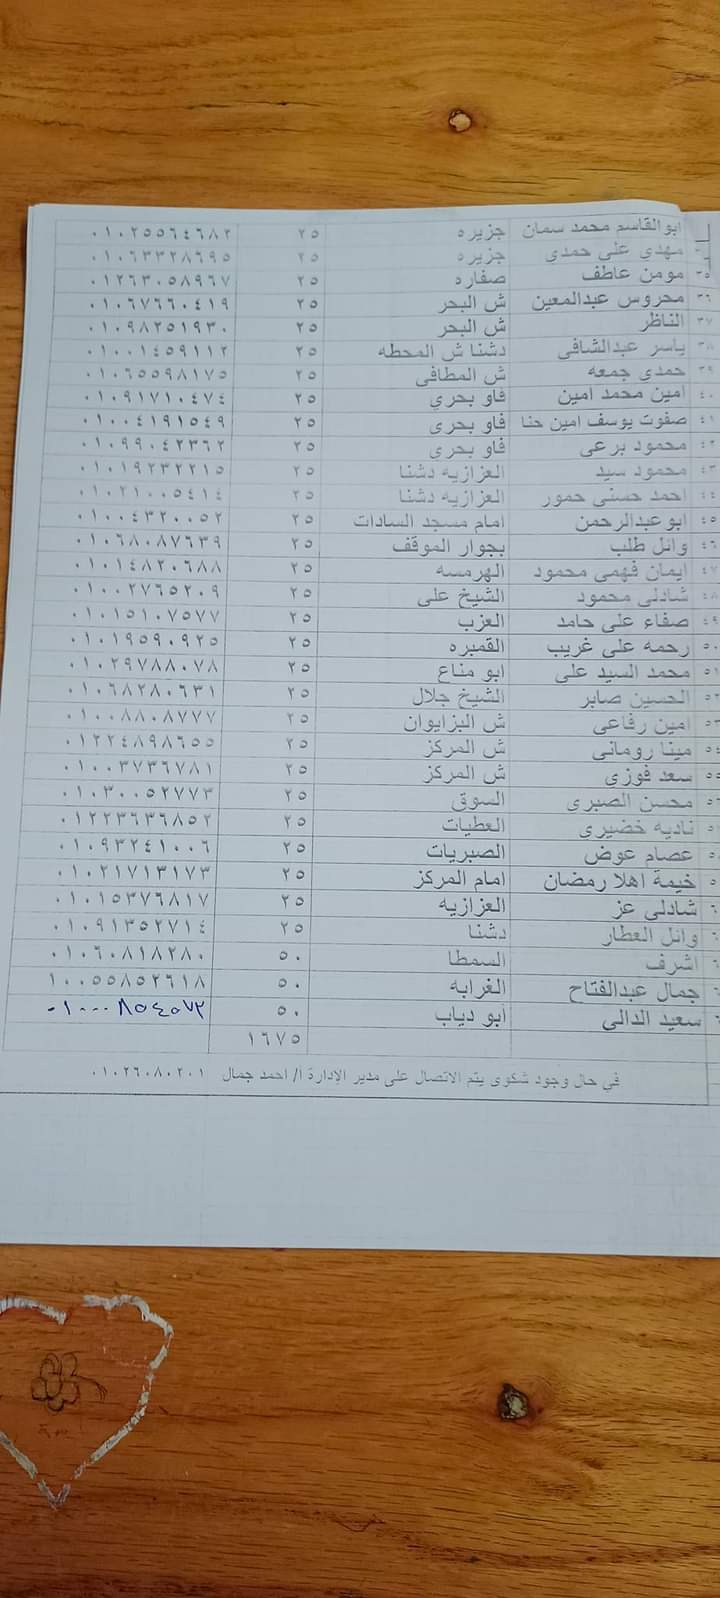 ابو القاسم محمد سمان جزيره ٢٥ ٠١٠٢٥٥٦٤٦٨٢
مهدي على حمدي جزيره ٢٥ ٠١٠٦٣٣٢٨٦٩٥
٣٥ مومن عاطف صفاره ٢٥ ٠١٢٦٣٠٥٨٩٦٧
٣٦ محروس عبدالمعين ش البحر ٢٥ ٠١٠٦٧٦٦٠٤١٩
٣٧ الناظر ش البحر ٢٥ ٠١٠٩٨٢٥١٩٣٠
٣٨ ياسر عبدالشافى دشنا ش المحطه ٢٥ ٠١٠٠١٤٥٩١١٢
٣٩ حمدي جمعه ش المطافى ٢٥ ٠١٠٦٥٥٩٨١٧٥
٤٠ امين محمد امين فاو بحري ٢٥ ٠١٠٩١٧١٠٤٧٤
٤١ صفوت يوسف امين حنا فاو بحري ٢٥ ٠١٠٠٤١٩١٥٤٩
٤٢ محمود برعى فاو بحري ٢٥ ٠١٠٩٩٠٤٢٣٦٢
٤٣ محمود سيد العزازيه دشنا ٢٥ ٠١٠١٩٢٣٢٢١٥
٤٤ احمد حسنى حمور العزازيه دشنا ٢٥ ٠١٠٢١٠٠٥٤١٤
٤٥ ابو عبدالرحمن امام مسجد السادات ٢٥ ٠١٠٠٤٣٢٠٠٥٢
٤٦ وائل طلب بجوار الموقف ٢٥ ٠١٠٦٨٠٨٧٦٣٩
٤٧ ايمان فهمى محمود الهرمسه ٢٥ ٠١٠١٤٨٢٠٦٨٨
٤٨ شادلى محمود الشيخ على ٢٥ ٠١٠٠٢٧٦٥٢٠٩
٤٩ صفاء على حامد العزب ٢٥ ٠١٠١٥١٠٧٥٧٧
٥٠ رحمه على غريب القمبره ٢٥ ٠١٠١٩٥٩٠٩٢٥
٥١ محمد السيد على ابو مناع ٢٥ ٠١٠٢٩٧٨٨٠٧٨
٥٢ الحسين صابر الشيخ جلال ٢٥ ٠١٠٦٨٢٨٠٦٣١
٥٣ امين رفاعى ش البزايوان ٢٥ ٠١٠٠٨٨٠٨٧٧٧
٥٤ مينا رومانى ش المركز ٢٥ ٠١٢٢٤٨٩٨٦٥٥
٥٥ سعد فوزي ش المركز ٢٥ ٠١٠٠٣٧٣٦٧٨١
محسن الصبرى السوق ٢٥ ٠١٠٣٠٠٥٢٧٧٣
ناديه خضيري العطيات ٢٥ ٠١٢٢٣٦٣٦٨٥٢
عصام عوض الصبريات ٢٥ ٠١٠٩٣٢٤١٠٠٦
خيمة اهلا رمضان امام المركز ٢٥ ٠١٠٢١٧١٣١٧٣
شادلى عز العزازيه ٢٥ ٠١٠١٥٣٧٦٨١٧
وائل العطار دشنا ٢٥ ٠١٠٩١٣٥٢٧١٤
اشرف السمطا ٥٠ ٠١٠٦٠٨١٨٢٨٠
جمال عبدالفتاح الغرابه ٥٠ ١٠٠٥٥٨٥٢٦١٨
سعيد الدالى ابو دياب ٥٠ ٠١٠٠٠٨٥٤٥٧٢
١٦٧٥
في حال وجود شكوى يتم الاتصال على مدير الإدارة أ/ احمد جمال ٠١٠٢٦٠٨٠٢٠١